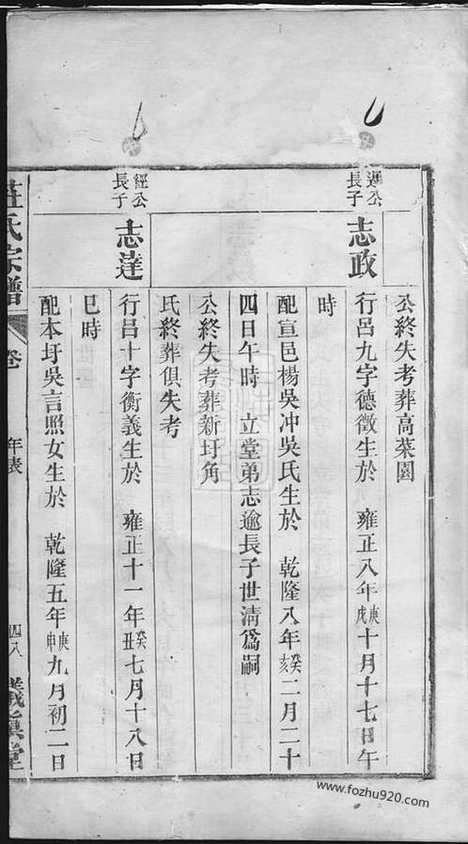 公終失考葬高菜園
遜公長子
志政
行呂九字德徵生於 雍正八年庚戌十月十七日午
時
配宣邑楊吳冲吳氏生於 乾隆八年癸亥二月二十
四日午時 立堂弟志逾長子世淸爲嗣
公終失考葬新圩角
氏終葬俱失考
經公長子
志達
行呂十字衡義生於 雍正十一年癸丑七月十八日
巳時
配本圩吳言照女生於 乾隆五年庚申九月初二日
氏宗譜
卷 年表 四八 堂
www.fozhu920.com